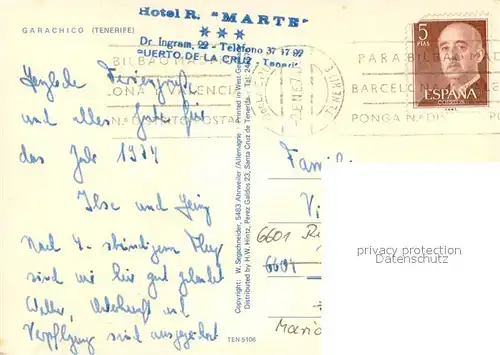 GARACHICO (TENERIFE)
Hotel R. "MARTE"
Dr. Ingram, 22 - Teléfono 37 17 92
PUERTO DE LA CRUZ - Tenerife
5
PTAS
ESPAÑA
CORREOS
BILBAO MADRID
PARA BILBAO MADRID
BARCEL
PONGA N.º DIS
TENERIFE
Herzliche Feriengrüße
und alles Gute für
das Jahr 1974
Ilse und
Nach 4-stündigem Flug
sind wir hier gut gelandet
Wetter, Unterkunft und
Verpflegung sind ausgezeichnet
Famil
6601
6601
Copyright: W. Segschneider, 5483 Ahrweiler/Allemagne - Printed in West Germany
Distributed by H.W. Hintz, Perez Galdos 23, Santa Cruz de Tenerife
TEN 5106
privacy protection
Datenschutz